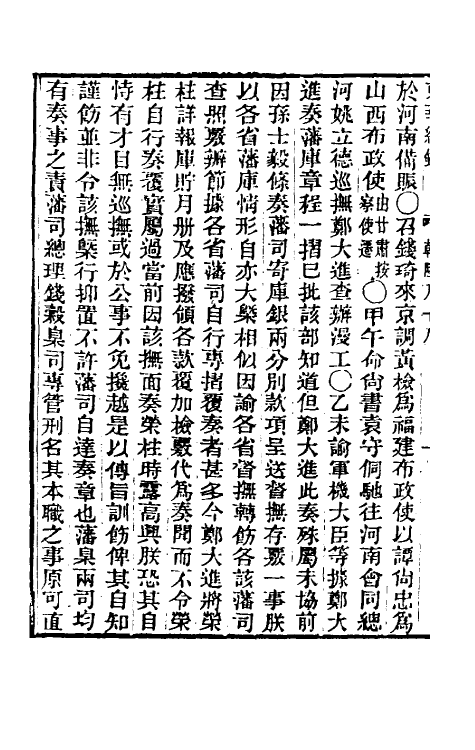 於河南備賑○召錢琦來京調黃檢爲福建布政使以譚尙忠爲
山西布政使由甘肅按察使遷○甲午命尙書袁守侗馳往河南會同總
河姚立德巡撫鄭大進查辦漫工○乙未諭軍機大臣等據鄭大
進奏藩庫章程一摺已批該部知道但鄭大進此奏殊屬未協前
因孫士毅條奏藩司寄庫銀兩分別款項呈送督撫存覈一事朕
以各省藩庫情形自亦大槩相似因諭各省督撫轉飭各該藩司
查照覈辦節據各省藩司自行專摺覆奏者甚多今鄭大進將榮
柱詳報庫貯月册及應撥領各款覆加檢覈代爲奏聞而不令榮
柱自行奏覆實屬過當前因該撫面奏榮柱時露高興朕恐其自
恃有才目無巡撫或於公事不免攙越是以傳旨訓飭俾其自知
謹飭並非令該撫槩行抑置不許藩司自達奏章也藩臬兩司均
有奏事之責藩司總理錢穀臬司專管刑名其本職之事原可直